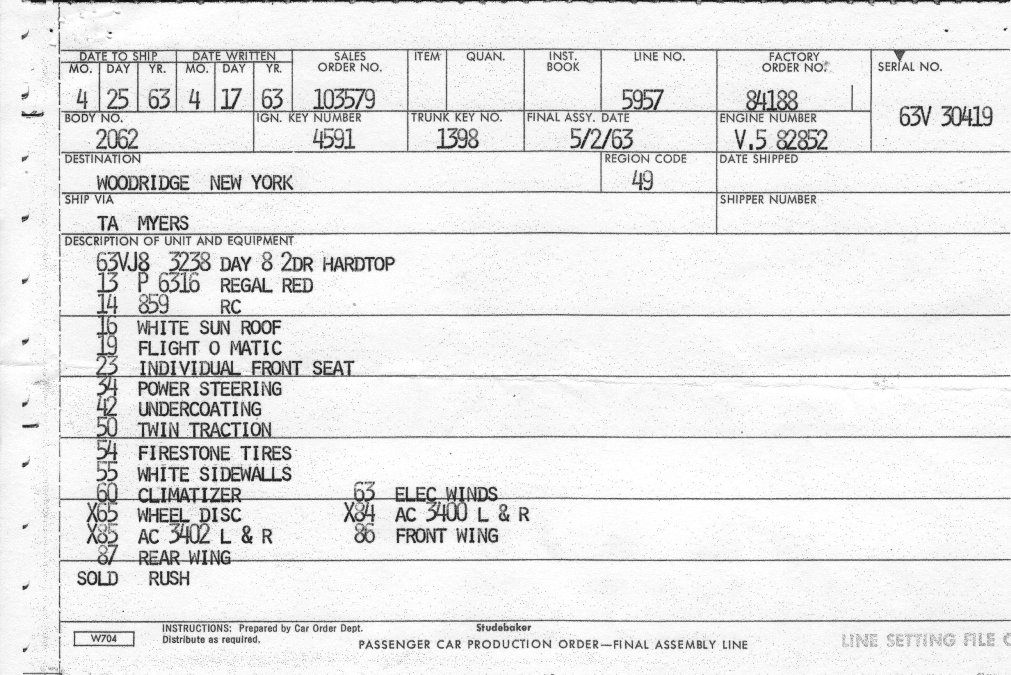 DATE TO SHIP DATE WRITTEN SALES ORDER NO. ITEM QUAN. INST. BOOK LINE NO. FACTORY ORDER NO. SERIAL NO.
MO. DAY YR. MO. DAY YR.
4 25 63 4 17 63 103579 5957 84188 63V 30419
BODY NO. IGN. KEY NUMBER TRUNK KEY NO. FINAL ASSY. DATE ENGINE NUMBER
2062 4591 1398 5/2/63 V.5 82852
DESTINATION REGION CODE DATE SHIPPED
WOODRIDGE NEW YORK 49
SHIP VIA SHIPPER NUMBER
TA MYERS
DESCRIPTION OF UNIT AND EQUIPMENT
63VJ8 3238 DAY 8 2DR HARDTOP
13 P 6316 REGAL RED
14 859 RC
16 WHITE SUN ROOF
19 FLIGHT O MATIC
23 INDIVIDUAL FRONT SEAT
34 POWER STEERING
42 UNDERCOATING
50 TWIN TRACTION
54 FIRESTONE TIRES
55 WHITE SIDEWALLS
60 CLIMATIZER 63 ELEC WINDS
X65 WHEEL DISC X84 AC 3400 L & R
X85 AC 3402 L & R 86 FRONT WING
87 REAR WING
SOLD RUSH
W704 INSTRUCTIONS: Prepared by Car Order Dept. Studebaker
Distribute as required. PASSENGER CAR PRODUCTION ORDER—FINAL ASSEMBLY LINE LINE SETTING FILE